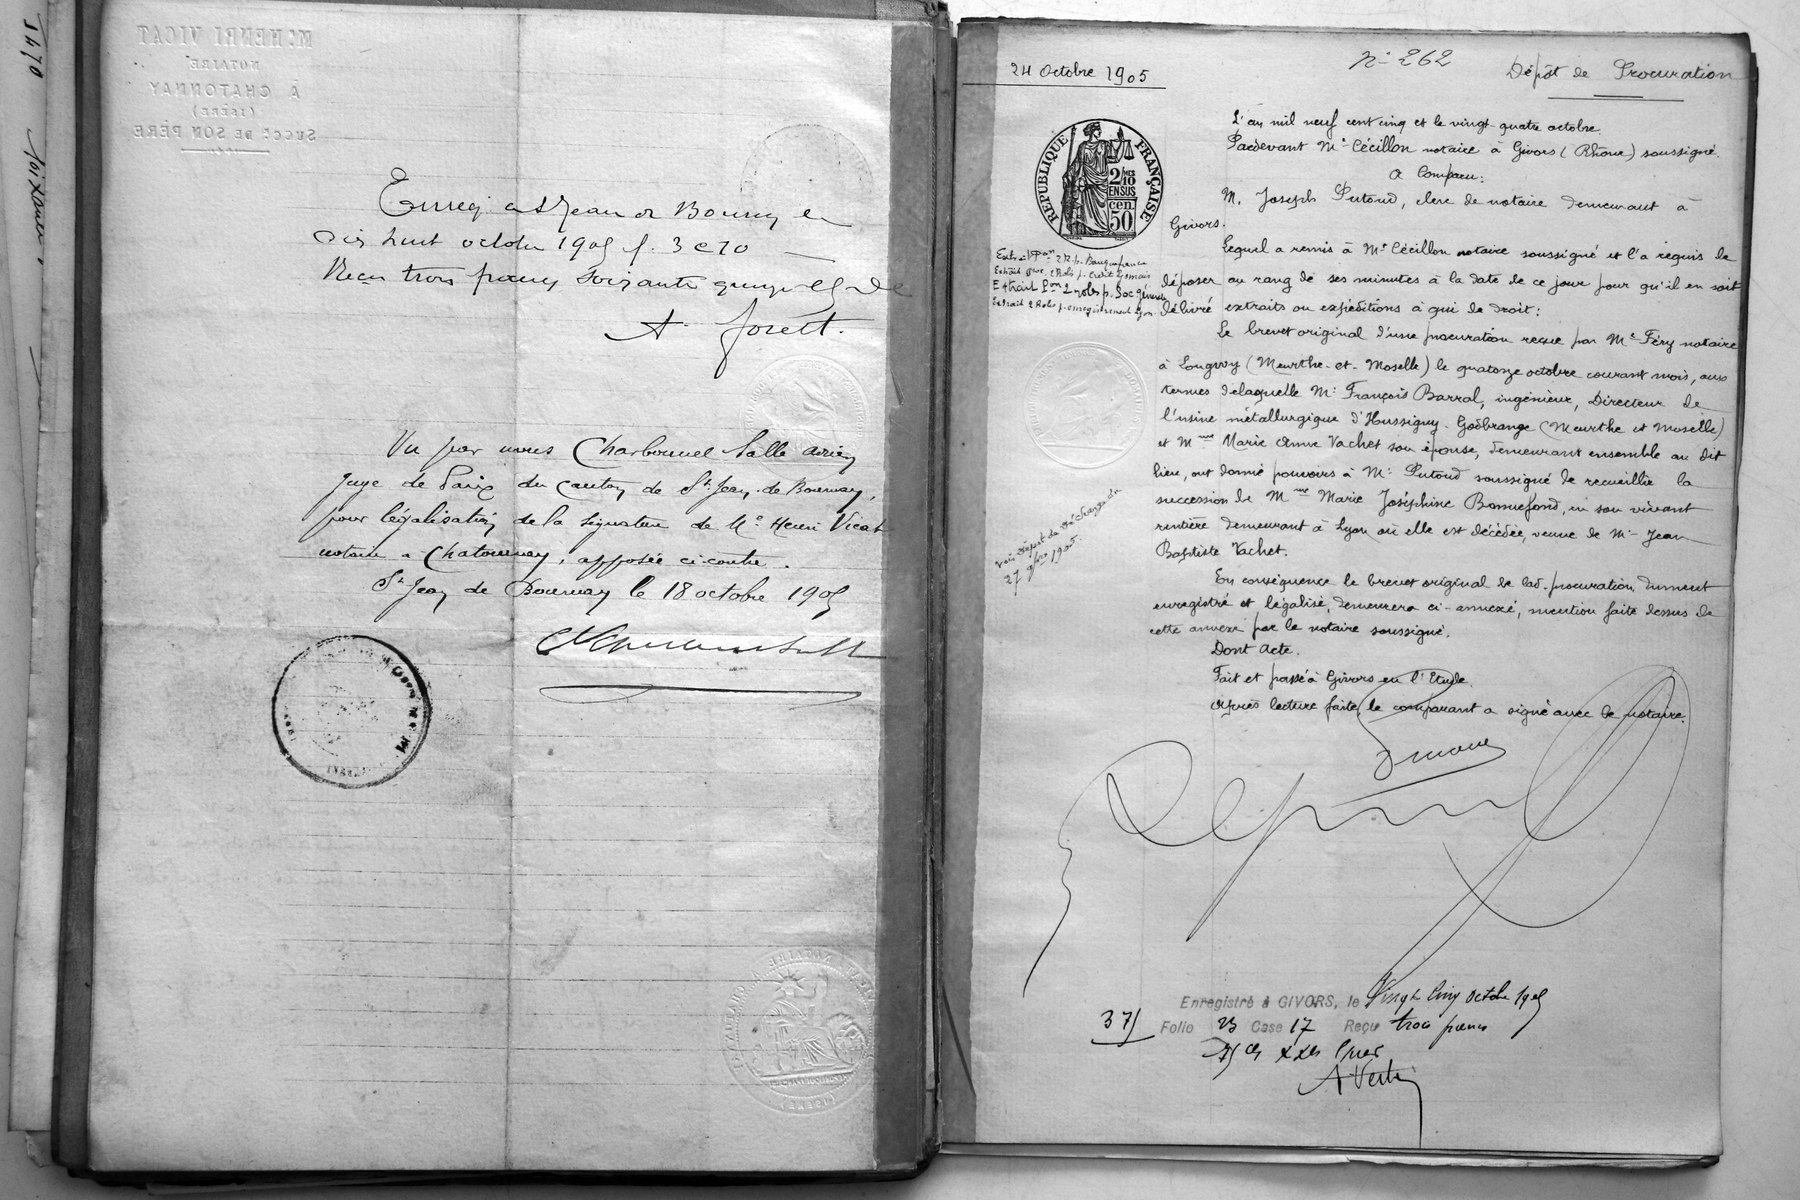 Me HENRI VICAT
NOTAIRE
A CHATONNAY
(ISÈRE)
SUCCr DE SON PÈRE
Enreg. à St Jean de Bournay le
dix huit octobre 1905 f. 3 c 10
Reçu trois francs soixante quinze
A. Forest.
Vu par nous Charbonnel Salle
Juge de Paix du canton de St Jean-de-Bournay,
pour légalisation de la signature de Me Henri Vicat
notaire à Chatonnay, apposée ci-contre.
St Jean de Bournay le 18 octobre 1905
24 Octobre 1905
No 262
Dépôt de Procuration
RÉPUBLIQUE FRANÇAISE
2/10
EN SUS
50 cen.
L'an mil neuf cent cinq et le vingt-quatre octobre.
Pardevant Me Cécillon notaire à Givors (Rhône) soussigné.
A Comparu:
M. Joseph Putoud, clerc de notaire demeurant à
Givors.
Lequel a remis à Me Cécillon notaire soussigné et l'a requis de
déposer au rang de ses minutes à la date de ce jour pour qu'il en soit
délivré extraits ou expéditions à qui de droit:
Le brevet original d'une procuration reçue par Me Féry notaire
à Longwy (Meurthe-et-Moselle) le quatorze octobre courant mois, aux
termes de laquelle Mr François Barral, ingénieur, Directeur de
l'usine métallurgique d'Hussigny-Godbrange (Meurthe et Moselle)
et Mme Marie Anne Vachet son épouse, demeurant ensemble au dit
lieu, ont donné pouvoirs à Mr Putoud soussigné de recueillir la
succession de Mme Marie Joséphine Bonnefond, en son vivant
rentière demeurant à Lyon où elle est décédée, veuve de Mr Jean
Baptiste Vachet.
En conséquence le brevet original de lad. procuration, dument
enregistré et légalisé, demeurera ci-annexé, mention faite dessus de
cette annexe par le notaire soussigné.
Dont Acte.
Fait et passé à Givors en l'Etude
Après lecture faite, le comparant a signé avec le notaire.
Extrait 2 R. p. Banque france
Extrait 2 Roles p. Crédit Lyonnais
Extrait 2 roles p. Soc générale
Extrait 2 Roles p. enregistrement Lyon.
Voir dépôt de décharge du
27 9bre 1905.
Enregistré à GIVORS, le Vingt Cinq Octobre 1905
375 Folio 23 Case 17 Reçu trois francs